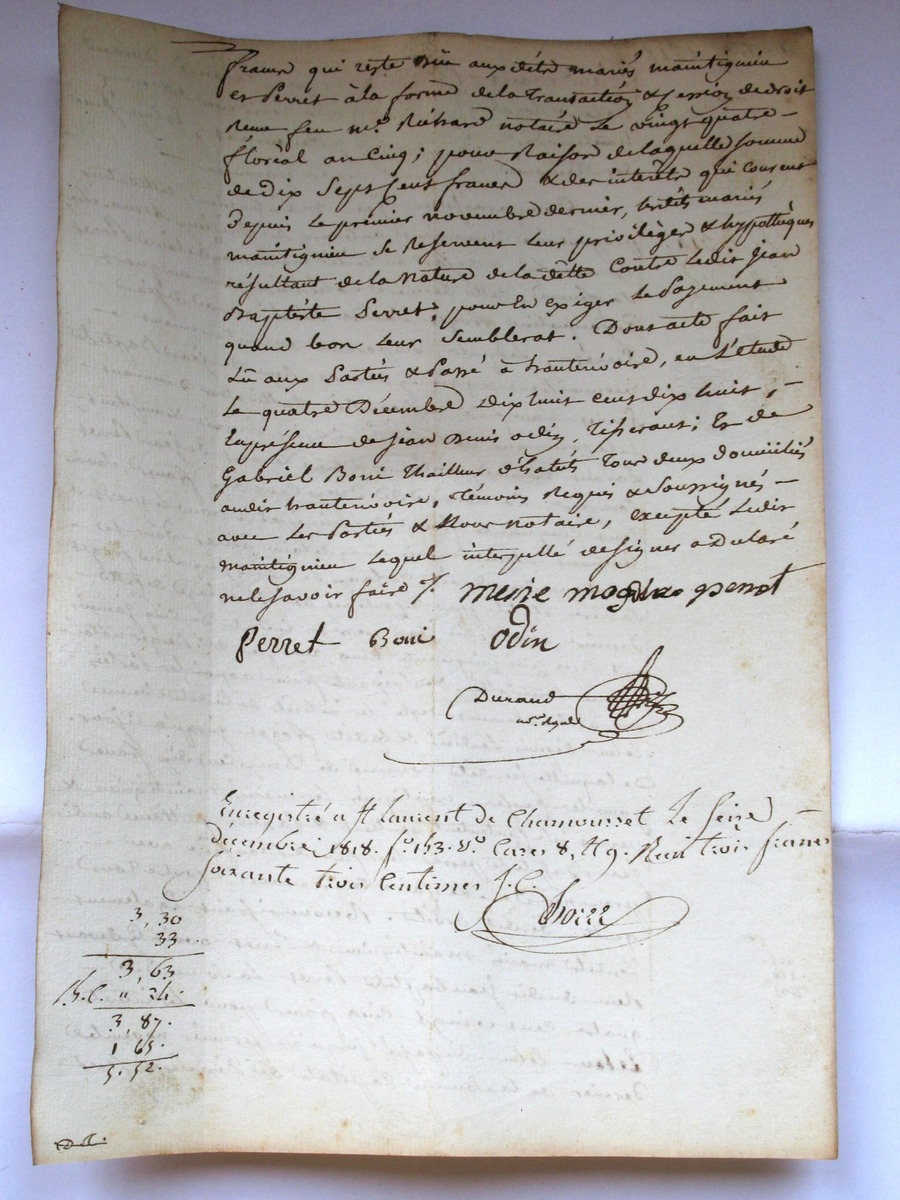 francs qui reste dûe aux dits mariés maintignieu
et Perret à la forme de la Transaction & Cession de droit
Reçue feu me. Richard notaire le vingt quatre -
floréal an Cinq ; pour Raison de laquelle somme
de dix Sept Cent francs & des interets qui courent
depuis le premier novembre dernier, lesdits mariés
maintignieu se Reservent leur privilèges & hypothèques
résultant de la Nature de la dette Contre ledit Jean
Baptiste Perret, pour En exiger le Payement
quand bon leur Semblerat. Dont acte fait
Lû aux Parties & Passé à hauterivoire, en L'étude
Le quatre Décembre dix huit cent dix huit, -
En présence de Jean Denis odin, Tisserant ; Et de
Gabriel Boni Thailleur d'habits Tous deux domiciliés
audit hauterivoire, Témoins Requis & Soussignés -
avec les Parties & Nous notaire, excepté Ledit
maintignieu lequel interpellé de signer a Déclaré
ne le savoir faire ./.
Perret Boni odin
Durand
nre. Royal
Enregistré a St Laurent de Chamousset Le Seize
décembre 1818. fo. 153. Vo. Cases 8, & 9. Reçu trois francs
soixante trois Centimes J.C.
3, 30
33
3, 63
" 24.
3, 87.
1 65.
5. 52.